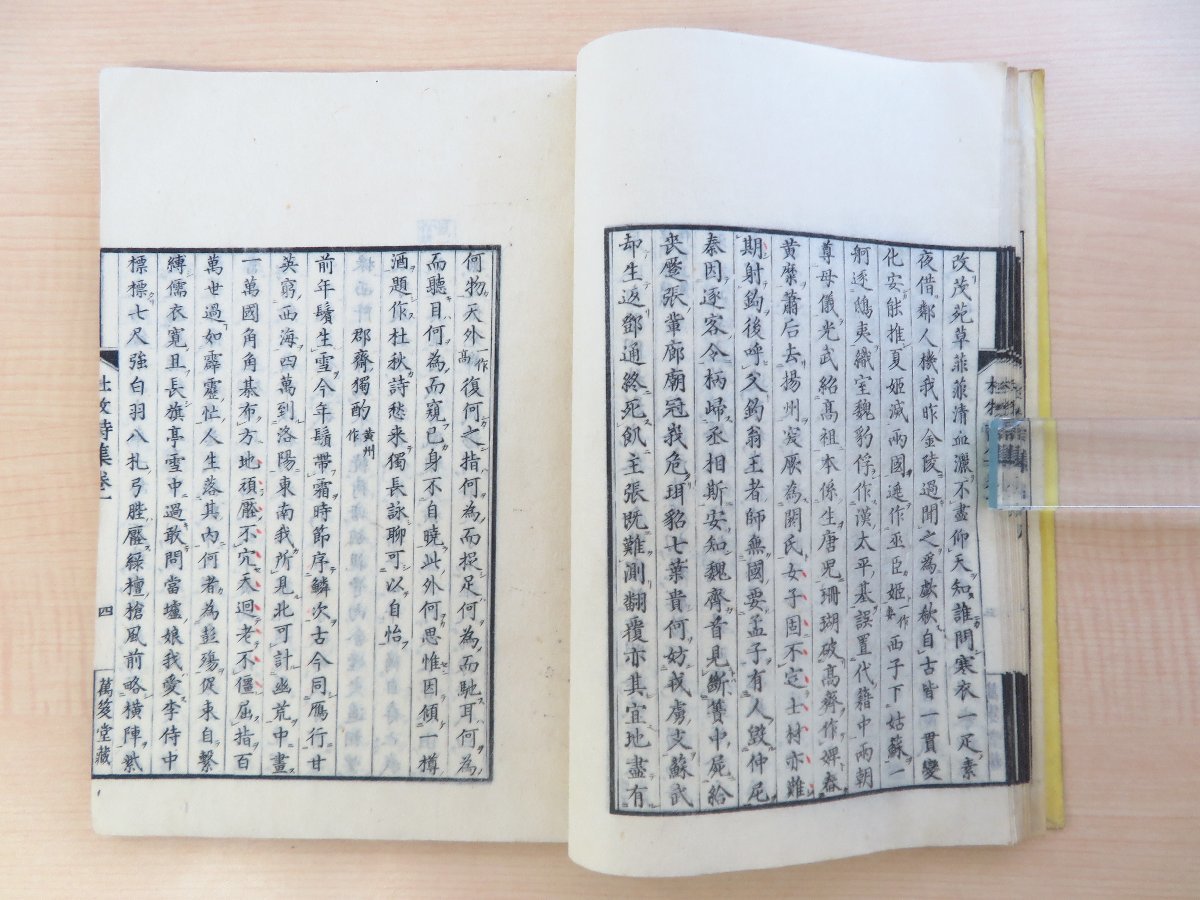 改茂苑草菲菲清血灑不盡仰天知誰問寒衣一疋素
夜借鄰人機我昨金陵過聞之為歔欷自古皆一貫變
化安能推夏姬滅兩國逃作巫臣姬一作妻西子下姑蘇一
舸逐鴟夷織室魏豹俘作漢太平基誤置代籍中兩朝
尊母儀光武紹高祖本係生唐兒珊瑚破高齊作婢舂
黄糜蕭后去揚州突厥為閼氏女子固不定士林亦難
期射鈎後呼父釣翁王者師無國要孟子有人毀仲尼
秦因逐客令柄歸丞相斯安知魏齊首見斷簀中屍給
喪蹷張輩廊廟冠我危珥貂七葉貴何妨我虜支蘇武
却生返鄧通終死飢主張既難測翻覆亦其宜地盡有
何物天外一作高復何之指何為而捉足何為而馳耳何為
而聽目何為而窺已身不自曉此外何思惟因傾一樽
酒題作杜秋詩愁来獨長詠聊可以自怡
郡齋獨酌黄州作
前年鬢生雪今年鬚帶霜時節序鱗次古今同雁行甘
英窮西海四萬到洛陽東南我所見北可計幽荒中畫
一萬國角角棊布方地頑壓不穴天迴老不僵屈指百
萬世過如霹靂忙人生落其内何者為彭殤促束自繫
縛儒衣寬且長旗亭雪中過敢問當壚娘我愛李侍中
標標七尺強白羽八札弓䏶壓綠檀槍風前略橫陣紫
杜牧詩集卷一
四
萬笈堂藏